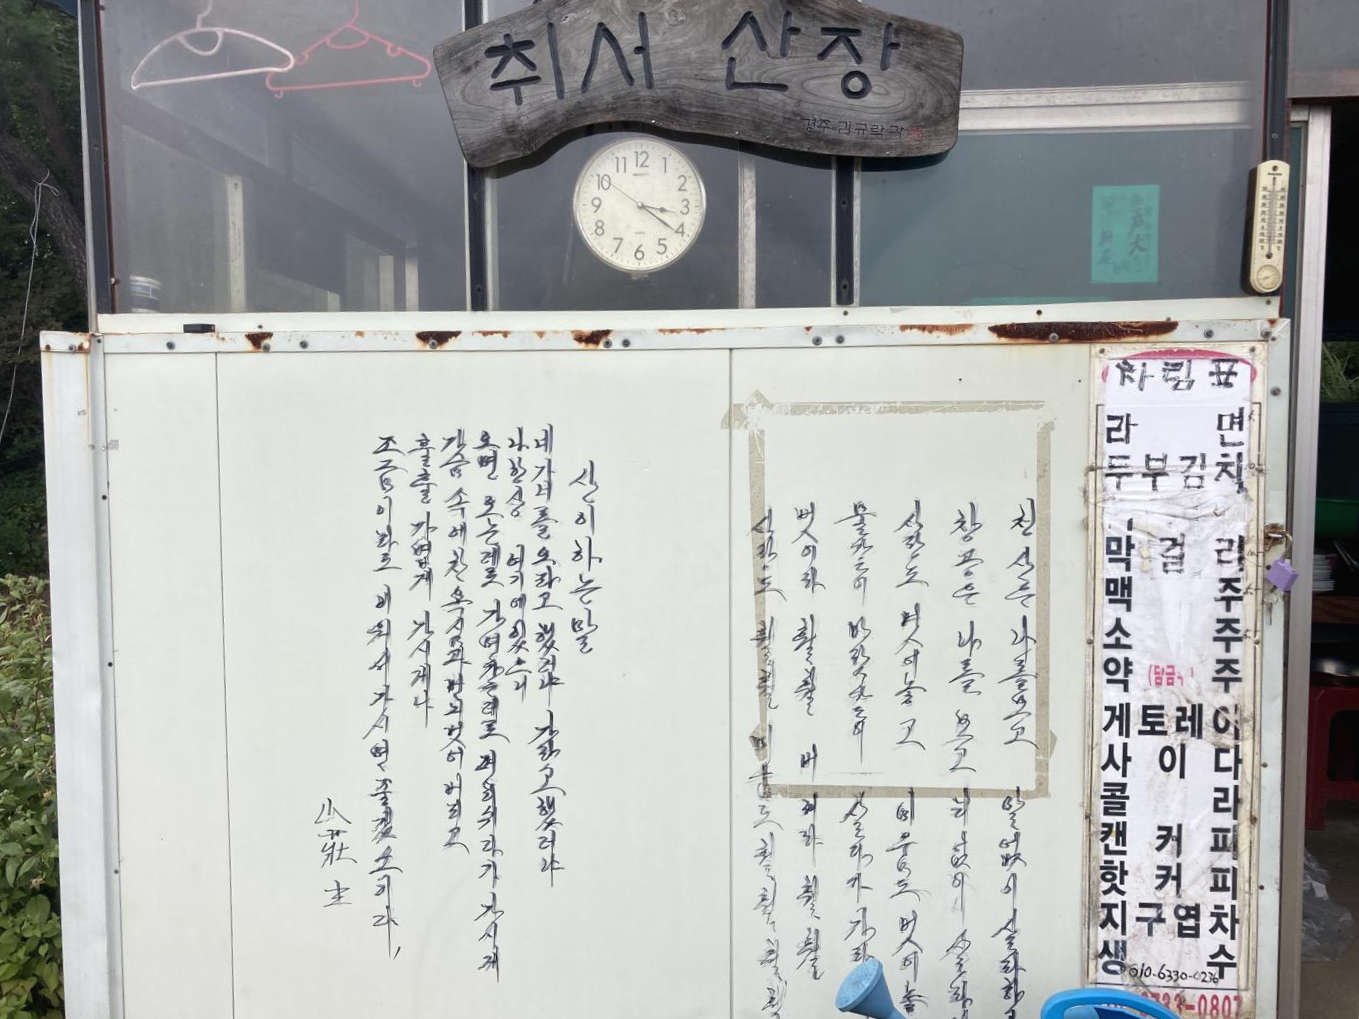 취서 산장
경주 김규락 각
12
1
2
3
4
5
6
7
8
9
10
11
차림표
라 면
두부김치
막 걸 리
맥 주
소 주
약 (담금) 주
게토레이
사 이 다
콜 라
캔 커 피
핫 커 피
지구엽차
생 수
010-6330-0236
733-0807
청산은 나를보고 말없이 살라하
창공은 나를 보고 티없이 살라하
사랑도 벗어놓고 미움도 벗어놓
물같이 바람같이 살다가 가라
벗어라 훨훨 버려라 훨훨
사랑도 훨훨 미움도 훨훨 훨훨
산이하는말
네가 나를 오라고 했더냐 가라고 했더냐
나 항상 여기에 있으니
오면 오는데로 가면 가는데로 가시게
가슴 속에 찬 벗어 버리고
훌훌 가볍게 가시게나
조금이라도 비워서 가시면 좋겠소이다,
山莊 主